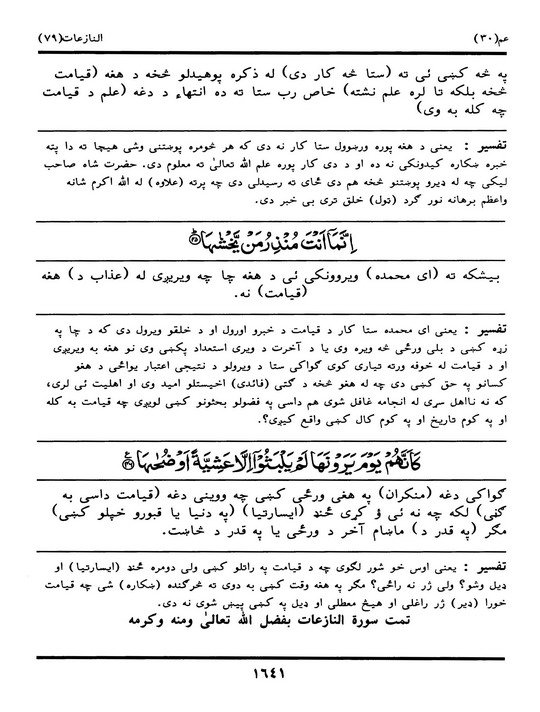 عم(٣٠) النازعات(٧٩)
په څه کښی ئی ته (ستا څه کار دی) له ذکره پوهیدلو څخه د هغه (قیامت
څخه بلکه تا لره علم نشته) خاص رب ستا ته ده انتهاء د دغه (علم د قیامت
چه کله به وی)
تفسیر : یعنی د هغه پوره ورښوول ستا کار نه دی که هر څومره پوښتنی وشی هیچا ته دا پته
خبره ښکاره کیدونکی نه ده او د دی کار پوره علم الله تعالیٰ ته معلوم دی. حضرت شاه صاحب
لیکی چه له ډیرو پوښتنو څخه هم دی ځای ته رسیدلی دی چه پرته (علاوه) له الله اکرم شانه
واعظم برهانه نور گرد (ټول) خلق تری بی خبر دی.
اِنَّمَآ اَنْتَ مُنْذِرُ مَنْ یَّخْشٰىهَا ﴿٤٥﴾
بیشکه ته (ای محمده) ویروونکی ئی د هغه چا چه ویریږی له (عذاب د) هغه
(قیامت) نه.
تفسیر : یعنی ای محمده ستا کار د قیامت د خبرو اورول او د خلقو ویرول دی که د چا په
زړه کښی د بلی ورځی څه ویره وی یا د آخرت د ویری استعداد پکښی وی نو هغه به ویریږی
او د قیامت له خوفه ورته تیاری کوی گواکی ستا د ویرولو د نتیجی اعتبار یواځی د هغو
کسانو په حق کښی دی چه له هغو څخه د گټی (فائدی) اخیستلو امید وی او اهلیت ئی لری،
که نه نااهل سړی له انجامه غافل شوی هم داسی په فضولو بحثونو کښی لویږی چه قیامت به کله
او په کوم تاریخ او په کوم کال کښی واقع کیږی؟.
كَاَنَّهُمْ یَوْمَ یَرَوْنَهَا لَمْ یَلْبَثُوْٓا اِلَّا عَشِیَّةً اَوْ ضُحٰىهَا ﴿٤٦﴾
گواکی دغه (منکران) په هغی ورځی کښی چه ووینی دغه (قیامت داسی به
گڼی) لکه چه نه ئی ؤ کړی ځنډ (ایسارتیا) (په دنیا یا قبورو خپلو کښی)
مگر (په قدر د) ماښام آخر د ورځی یا په قدر د څاښت.
تفسیر : یعنی اوس خو شور لگوی چه د قیامت په راتلو کښی ولی دومره ځنډ (ایسارتیا) او
ډیل وشو؟ ولی ژر نه راځی؟ مگر په هغه وقت کښی به دوی ته څرگنده (ښکاره) شی چه قیامت
خورا (ډیر) ژر راغلی او هیڅ معطلی او ډیل په کښی پیښ شوی نه دی.
تمت سورة النازعات بفضل الله تعالیٰ ومنه وکرمه
١٦٤١